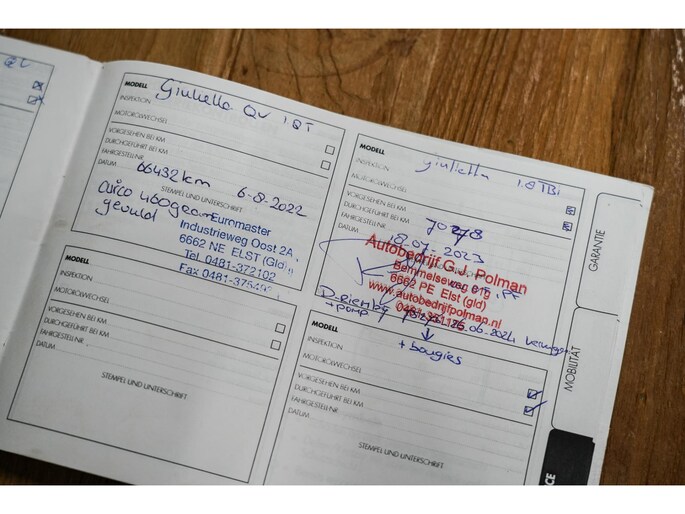 MODELL Giulietta QV 1.8T
INSPEKTION
MOTORÖLWECHSEL
VORGESEHEN BEI KM
DURCHGEFÜHRT BEI KM
FAHRGESTELLNR
DATUM 66432km 6-8-2022
STEMPEL UND UNTERSCHRIFT
airco 460gram
gevuld
Euromaster
Industrieweg Oost 2A
6662 NE ELST (Gld)
Tel 0481-372102
Fax 0481-375492
MODELL
INSPEKTION
MOTORÖLWECHSEL
VORGESEHEN BEI KM
DURCHGEFÜHRT BEI KM
FAHRGESTELLNR
DATUM
STEMPEL UND UNTERSCHRIFT
MODELL giulietta 1.8 TBi
INSPEKTION
MOTORÖLWECHSEL
VORGESEHEN BEI KM
DURCHGEFÜHRT BEI KM
FAHRGESTELLNR 70278
DATUM 18-07-2023
Autobedrijf G.J. Polman
Bemmelseweg
6662 PE Elst (gld)
www.autobedrijfpolman.nl
D-riem
+ pomp
26-06-2024
+ bougies
MODELL
INSPEKTION
MOTORÖLWECHSEL
VORGESEHEN BEI KM
DURCHGEFÜHRT BEI KM
FAHRGESTELLNR
DATUM
STEMPEL UND UNTERSCHRIFT
GARANTIE
MOBILITÄT